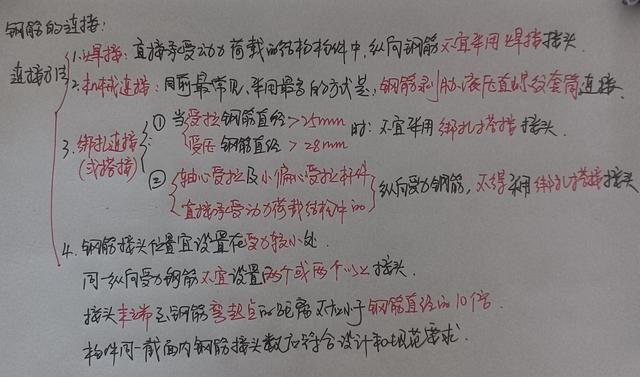 钢筋的连接:
连接方法
1.焊接:直接承受动力荷载的结构构件中,纵向钢筋不宜采用焊接接头.
2.机械连接:目前最常见、采用最多的方式是,钢筋剥肋滚压直螺纹套筒连接.
3.绑扎连接(或搭接)
①当受拉钢筋直径>25mm
受压钢筋直径>28mm
时:不宜采用绑扎搭接接头.
②轴心受拉及小偏心受拉杆件
直接承受动力荷载结构件的
纵向受力钢筋,不得采用绑扎搭接接头
4.钢筋接头位置宜设置在受力较小处.
同一纵向受力钢筋不宜设置两个或两个以上接头.
接头末端至钢筋弯起点的距离不应小于钢筋直径的10倍.
构件同一截面内钢筋接头数应符合设计和规范要求.